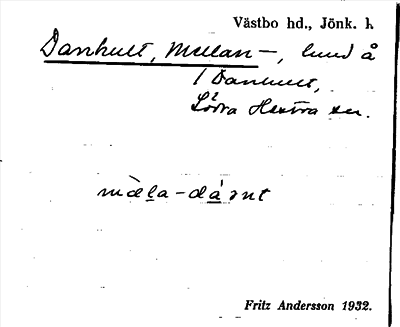 Västbo hd., Jönk. l.
Danhult, Mellan –, hmd å
1 Danhult,
Södra Hestra sn.
mὰla – då nt
Fritz Andersson 1932.